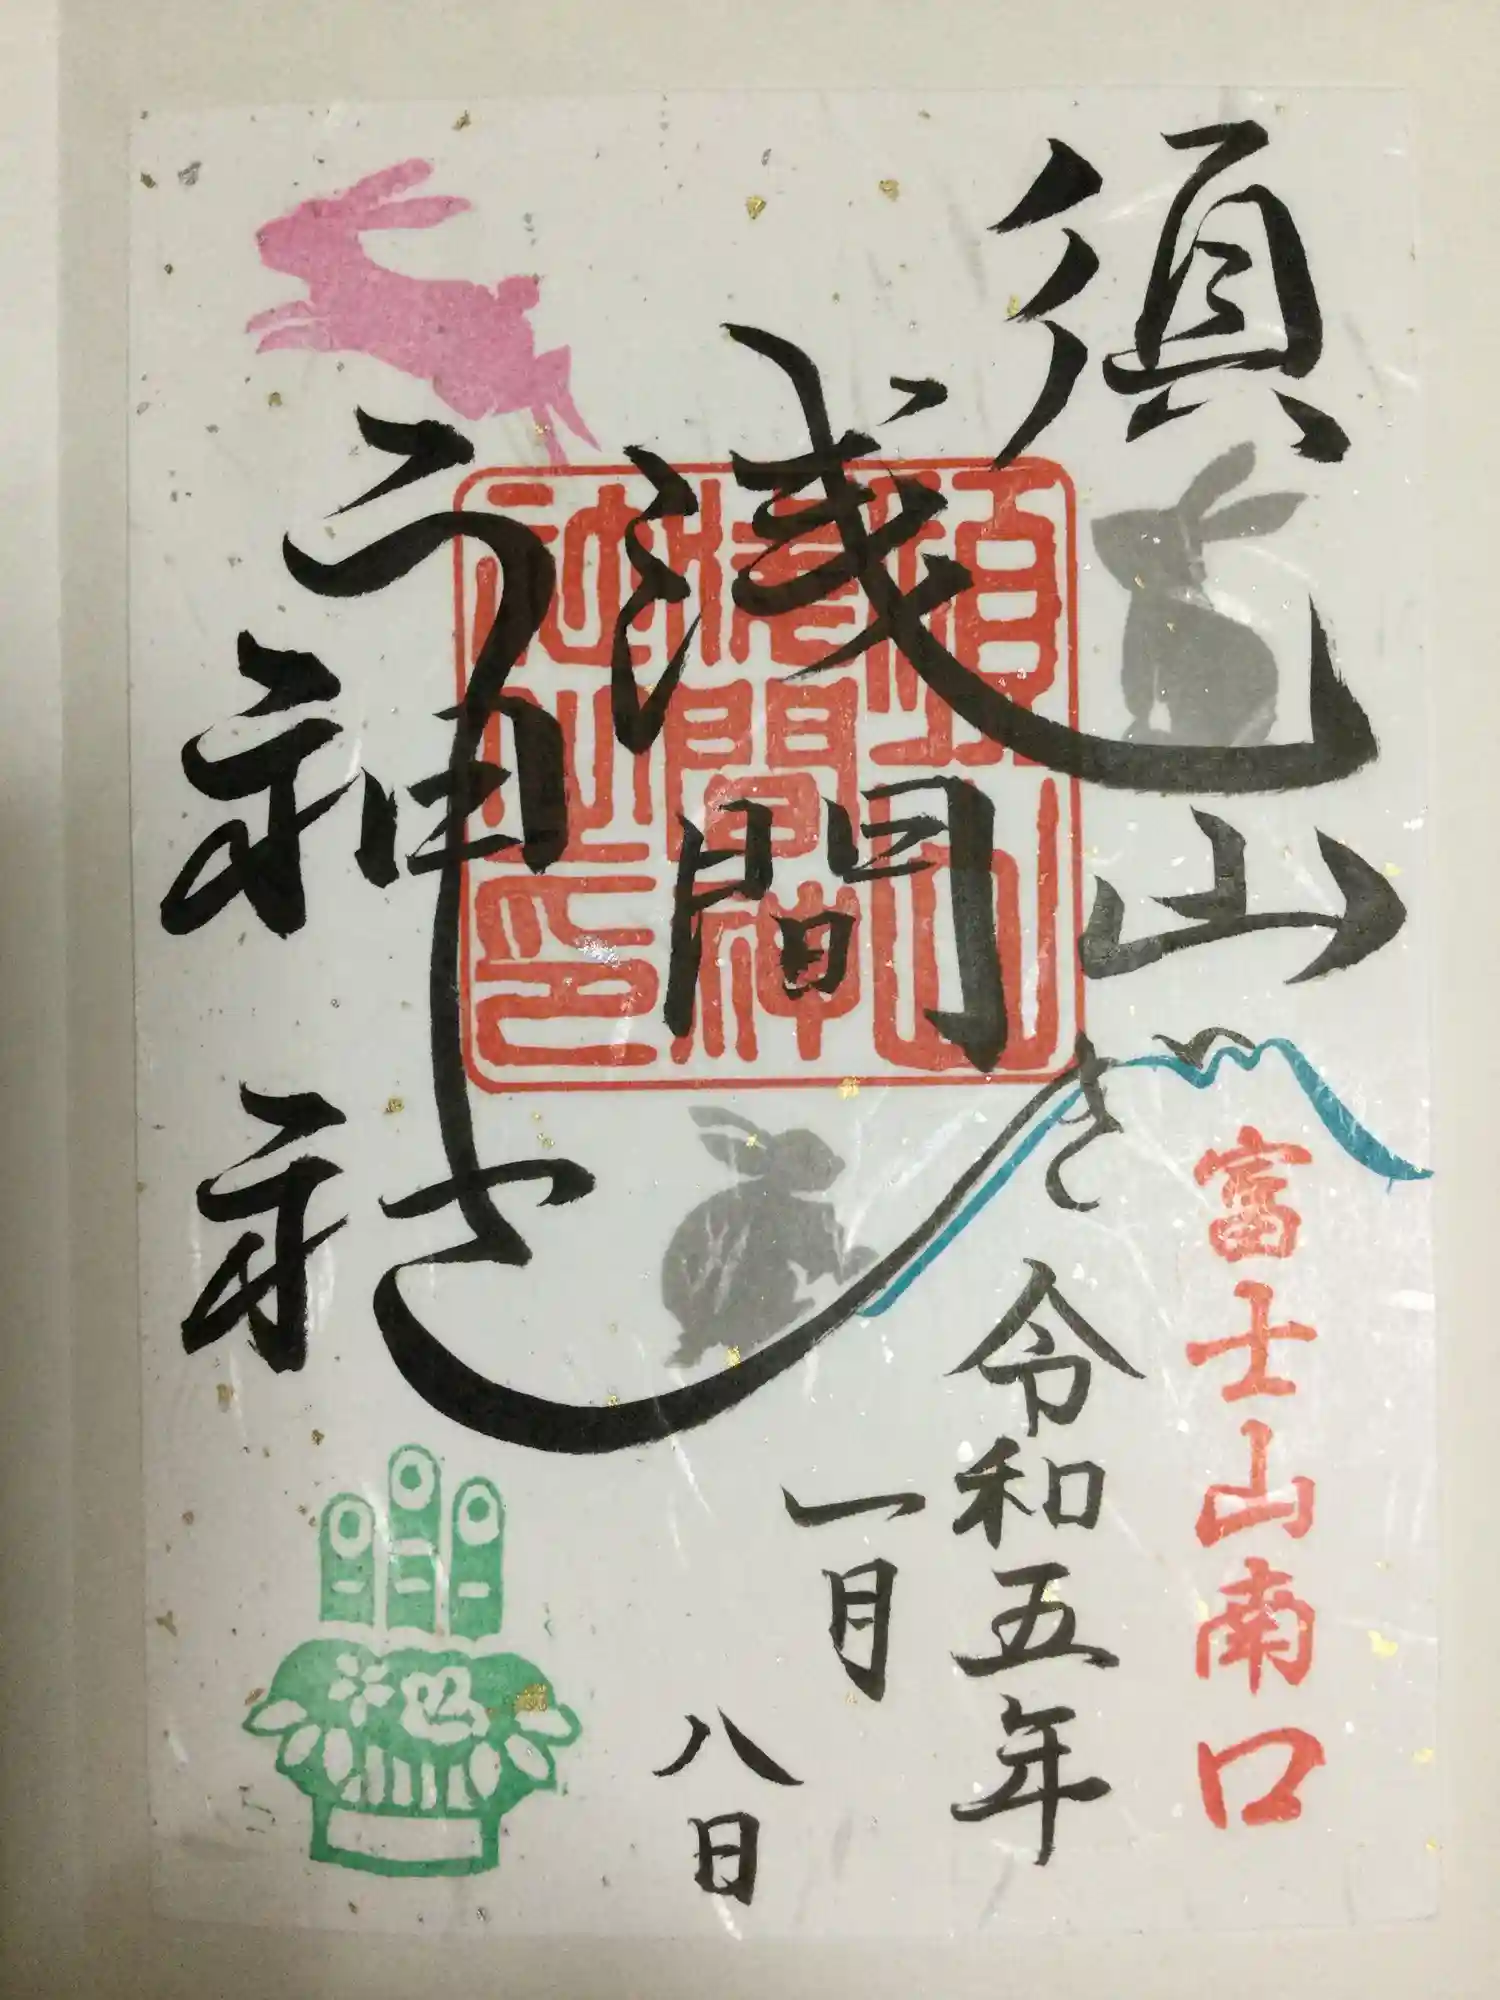 須山
浅間
神社
富士山南口
令和五年
一月
八日
須山
淺間神
社之印